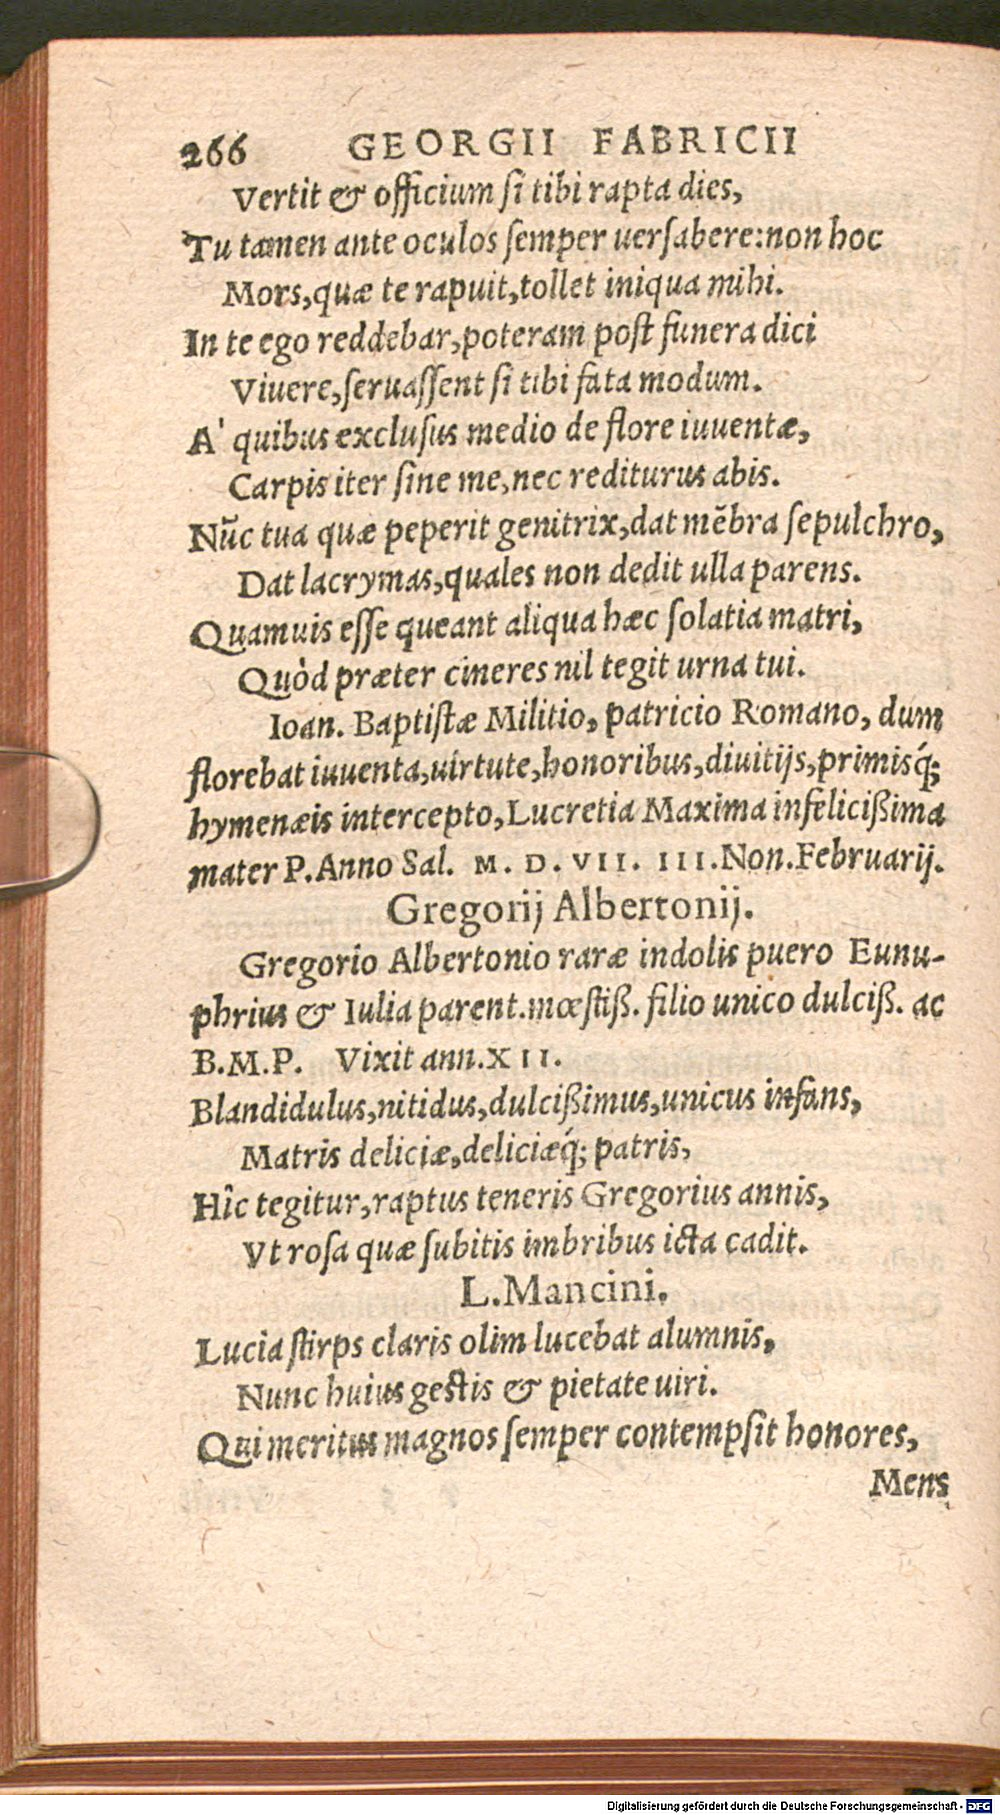 266 GEORGII FABRICII
Vertit & officium si tibi rapta dies,
Tu tamen ante oculos semper uersabere: non hoc
Mors, quæ te rapuit, tollet iniqua mihi.
In te ego reddebar, poteram post funera dici
Viuere, seruassent si tibi fata modum.
A' quibus exclusus medio de flore iuuentæ,
Carpis iter sine me, nec rediturus abis.
Nũc tua quæ peperit genitrix, dat mẽbra sepulchro,
Dat lacrymas, quales non dedit ulla parens.
Quamuis esse queant aliqua hæc solatia matri,
Quòd præter cineres nil tegit urna tui.
Ioan. Baptistæ Militio, patricio Romano, dum
florebat iuuenta, uirtute, honoribus, diuitijs, primisq́;
hymenæis intercepto, Lucretia Maxima infelicißima
mater P. Anno Sal. M. D. VII. III. Non. Februarij.
Gregorij Albertonij.
Gregorio Albertonio raræ indolis puero Eunu-
phrius & Iulia parent. mœstiß. filio unico dulciß. ac
B. M. P. Vixit ann. XII.
Blandidulus, nitidus, dulcißimus, unicus infans,
Matris deliciæ, deliciæq́; patris,
Hîc tegitur, raptus teneris Gregorius annis,
Vt rosa quæ subitis imbribus icta cadit.
L. Mancini.
Lucia stirps claris olim lucebat alumnis,
Nunc huius gestis & pietate uiri.
Qui meritus magnos semper contempsit honores,
Mens
Digitalisierung gefördert durch die Deutsche Forschungsgemeinschaft - DFG